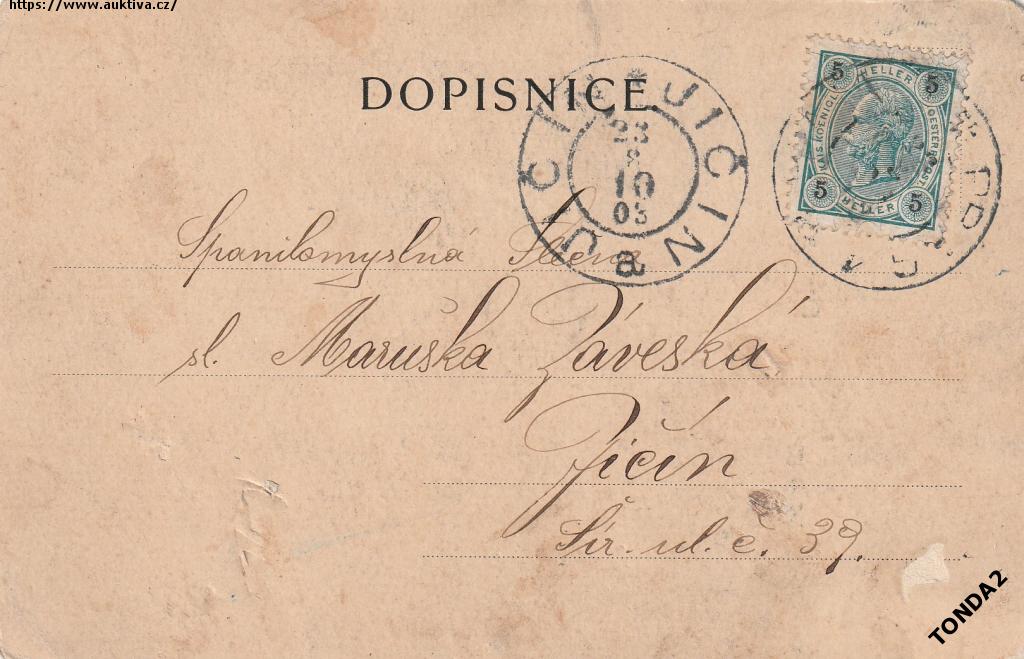 https://www.auktiva.cz/
DOPISNICE
JIČÍN JIČIN
23
8
10
03
a
5 HELLER 5
KAIS. KOENIGL. OESTERR. POST
5 HELLER 5
Spanilomyslná Slečna
sl. Maruška Záveská
Jičín
Šír. ul. č. 39.
TONDA2